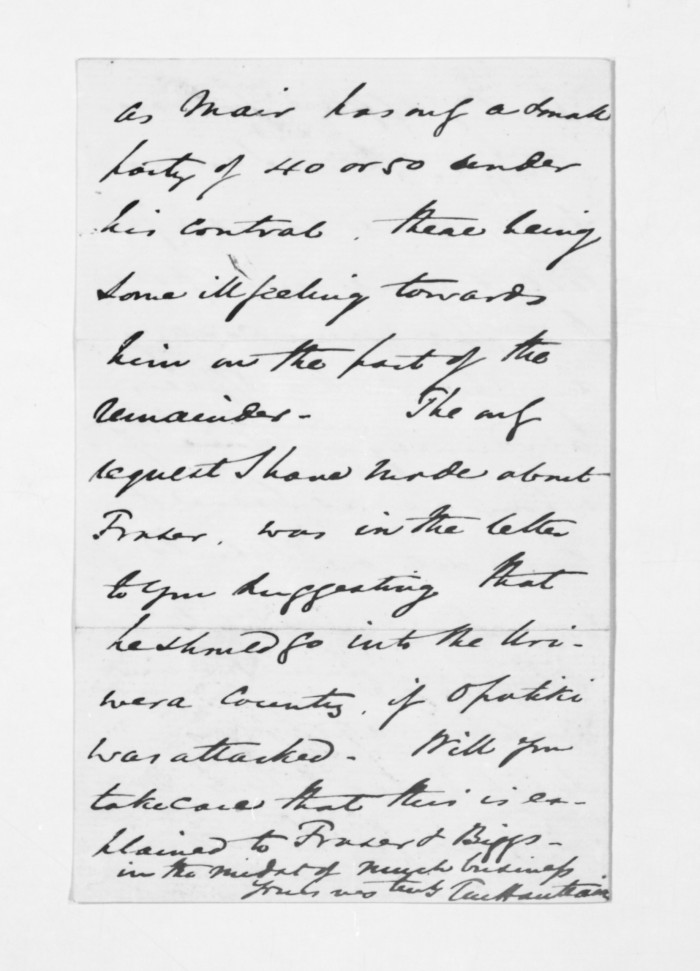 as Mair has only a small
party of 40 or 50 under
his control, there being
some ill feeling towards
him on the part of the
remainder - The only
request I have made about
Fraser, was in the letter
to you suggesting that
he should go into the Uri-
wera Country, if Opotiki
was attacked - Will you
take care that this is ex-
plained to Fraser & Biggs -
in the midst of much business
Yours very truly